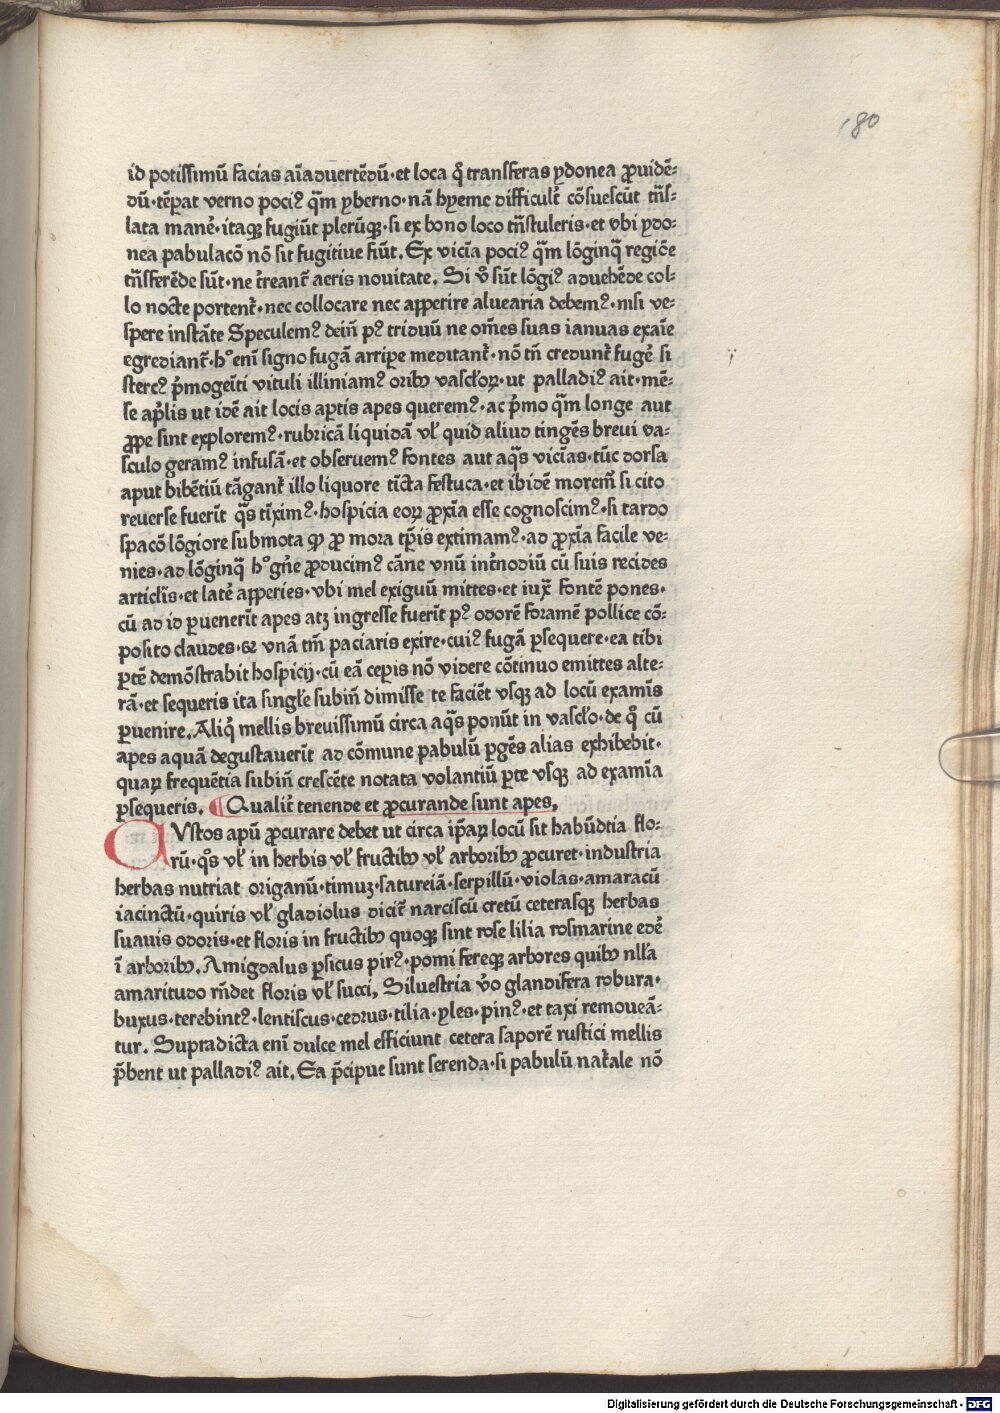 180
id potissimū facias aīaduertēdū·et loca q̄ transferas ydonea ꝓuidē⸗
dū·tēꝑat verno pociꝰ q̄m yberno·nā hyeme difficult̄ cōsuescūt trās⸗
lata manēt·itaqꝫ fugiūt plerūqꝫ·si ex bono loco trāstuleris·et vbi ydo⸗
nea pabulacō nō sit fugitiue fiūt. Ex vicīa pociꝰ q̄m lōginq̄ regiōe
trāsferēde sūt·ne t̄reant̄ aeris nouitate. Si v̄o sūt lōgiꝰ aduehēde col⸗
lo nocte portent̄·nec collocare nec apperire aluearia debemꝰ·nisi ve⸗
spere instāte Speculemꝰ dein̄ pꝰ triduū ne om̄es suas ianuas exaīe
egrediant̄·h° enī signo fugā arripe meditant̄·nō tn̄ credunt̄ fugē si
stercꝰ p̄mogeīti vituli illiniamꝰ oribꝫ vascl̄oꝝ·ut palladiꝰ ait·mē⸗
se ap̄lis ut idē ait locis aptis apes queremꝰ·ac p̄mo q̄m longe aut
ꝓpe sint exploremꝰ·rubricā liquidā vl̄ quid aliud tingēs breui va⸗
sculo geramꝰ infusā·et obseruemꝰ fontes aut aq̄s vicīas·tūc dorsa
aput bibētiū tāgant̄ illo liquore tīcta festuca·et ibidē morem̄ si cito
reuerse fuerīt q̄s tīximꝰ·hospicia eoꝝ ꝓxīa esse cognoscimꝰ·si tardo
spacō lōgiore submota ꝙ ꝓ mora tp̄is extimamꝰ·ad ꝓxīa facile ve⸗
nies·ad lōginq̄ h° gn̄e ꝓducimꝰ cāne vnū int̄nodiū cū suis recides
articlīs·et latē apperies·vbi mel exiguū mittes·et iuxͣ fontē pones·
cū ad id ꝑuenerīt apes atqꝫ ingresse fuerīt pꝰ odorē foramē pollice cō⸗
posito claudes·et vnā tm̄ paciaris exire·cuiꝰ fugā ꝑsequere·ea tibi
ꝑtē demōstrabit hospicij·cū eā ceperis nō videre cōtinuo emittes alte⸗
rā·et sequeris ita singl̄e subin̄ dimisse te faciēt vsqꝫ ad locū examīs
ꝑuenire. Aliqͥ mellis breuissimū circa aq̄s ponūt in vascl̄o·de q̄ cū
apes aquā degustauerīt ad cōmune pabulū ꝑgēs alias exhibebit·
quaꝝ frequētia subin̄ crescēte notata volantiū ꝑte vsqꝫ ad examīa
ꝑsequeris. ¶ Qualit̄ tenende et ꝓcurande sunt apes.
CUstos apū ꝓcurare debet ut circa ip̄aꝝ locū sit habūdtia flo⸗
rū·q̄s vl̄ in herbis vl̄ fructibꝫ vl̄ arboribꝫ ꝓcuret·industria
herbas nutriat origanū·timuꝫ·satureiā·serpillū·violas·amaracū
iacinctū·quiris vl̄ gladiolus dicit̄ narciscū cretū ceterasqꝫ herbas
suauis odoris·et floris in fructibꝫ quoqꝫ sint rose lilia rosmarine edē
ī arboribꝫ. Amigdalus ꝑsicus pirꝰ·pomi fereqꝫ arbores quibꝫ nll̄a
amaritudo rn̄det floris vl̄ succi, Siluestria v̄o glandifera robura·
buxus·terebintꝰ·lentiscus·cedrus·tilia·yles·pinꝰ·et taxi remoueā⸗
tur. Supradicta enī dulce mel efficiunt cetera saporē rustici mellis
p̄bent ut palladiꝰ ait. Ea p̄cipue sunt serenda·si pabulū nat̄ale nō
Digitalisierung gefördert durch die Deutsche Forschungsgemeinschaft - DFG